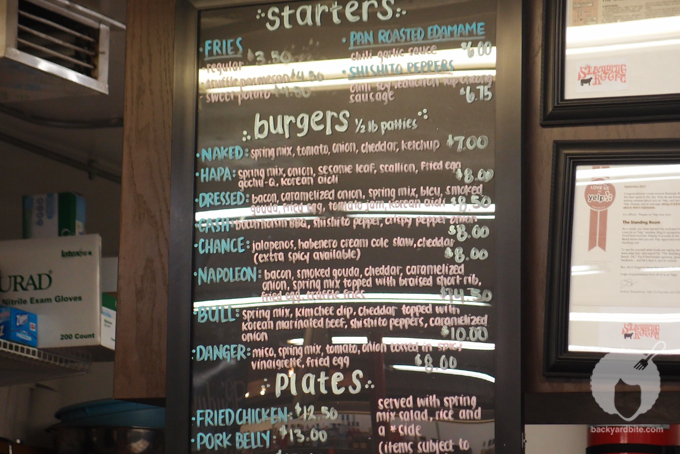 starters
FRIES
regular $3.50
truffle parmesan $4.50
sweet potato $4.50
PAN ROASTED EDAMAME
chili garlic sauce $6.00
SHISHITO PEPPERS
sausage $6.75
burgers 1/2 lb patties
NAKED: spring mix, tomato, onion, cheddar, ketchup $7.00
HAPA: spring mix, onion, sesame leaf, scallion, fried egg
gochu-a, korean aioli $8.00
DRESSED: bacon, caramelized onion, spring mix, bleu, smoked
gouda, fried egg, tomato jam, korean aioli $9.50
CASH: bacon, shishito pepper, crispy pepper onion
$8.00
CHANCE: jalapenos, habenero cream cole slaw, cheddar
(extra spicy available) $8.00
NAPOLEON: bacon, smoked gouda, cheddar, caramelized
onion, spring mix topped with braised short rib,
fried egg, truffle fries $14.50
BULL: spring mix, kimchee dip, cheddar topped with
korean marinated beef, shishito peppers, caramelized
onion $10.00
DANGER: miso, spring mix, tomato, onion tossed in spicy
vinaigrette, fried egg $8.00
plates
FRIED CHICKEN: $12.50
PORK BELLY: $13.00
served with spring
mix salad, rice and
a *side
(items subject to
CURAD
Nitrile Exam Gloves
200 Count
Standing Room
yelp
The Standing Room
Standing Room
backyardbite.com